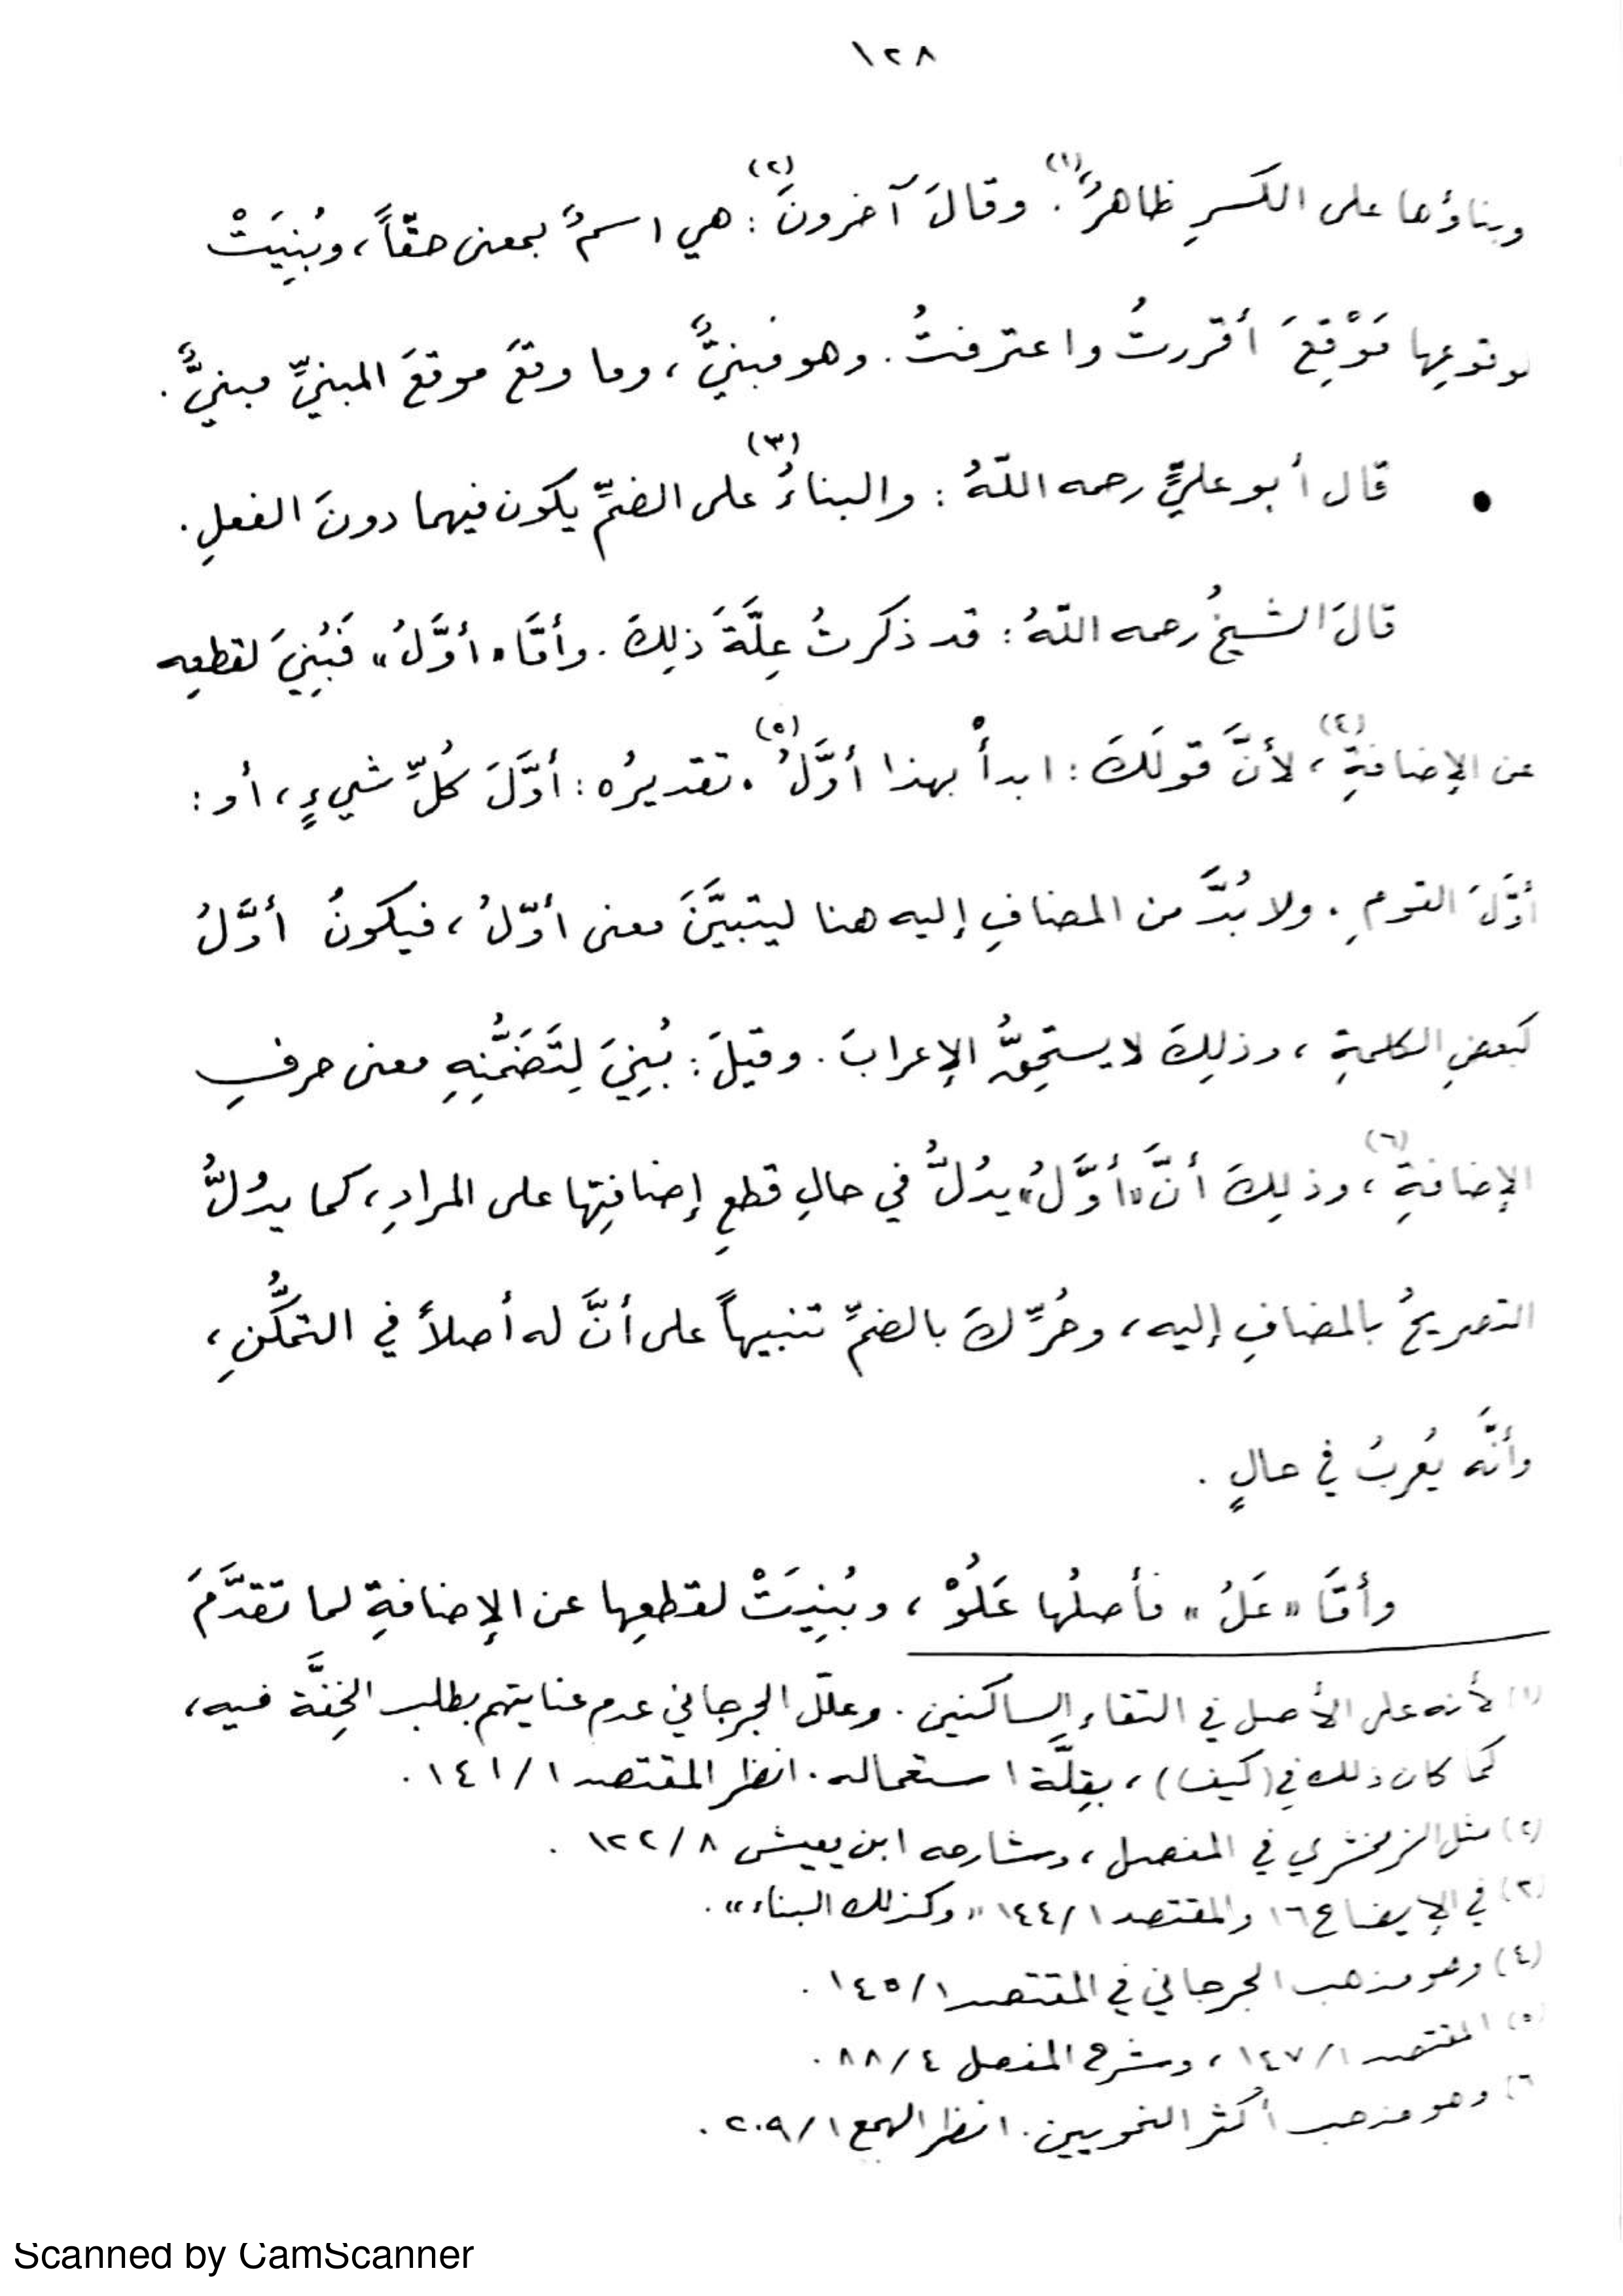 ١٢٨
وبناؤها على الكسرِ ظاهرٌ(١). وقالَ آخرونَ(٢): هي اسمٌ بمعنى حقّاً، وبُنِيَتْ
لوقوعِها مَوْقِعَ أقررتُ واعترفتُ. وهو مَبنيٌّ، وما وقعَ موقعَ المبنيِّ مبنيٌّ.
• قال أبو عليٍّ رحمه اللّهُ: والبناءُ(٣) على الضمِّ يكون فيهما دونَ الفعلِ.
قالَ الشيخُ رحمه اللّهُ: قد ذكرتُ عِلَّةَ ذلِكَ. وأمَّا «أوَّلُ» فَبُنِيَ لقطعِه
عن الإضافةِ(٤)، لأنَّ قولَكَ: ابدأْ بهذا أوَّلُ(٥). تقديرُه: أوَّلَ كُلِّ شيءٍ، أو:
أوَّلَ القومِ. ولا بُدَّ من المضافِ إليه هنا ليتبيَّنَ معنى أوّلُ، فيكونُ أوَّلُ
كَبعضِ الكلمةِ، وذلِكَ لا يستحِقُّ الإعرابَ. وقيلَ: بُنِيَ لِتَضَمُّنِهِ معنى حرفِ
الإضافةِ(٦)، وذلِكَ أنَّ «أوَّلُ» يدُلُّ في حالِ قطعِ إضافتِها على المرادِ، كما يدُلُّ
التصريحُ بالمضافِ إليه، وحُرِّكَ بالضمِّ تنبيهاً على أنَّ له أصلاً في التمكُّنِ،
وأنَّه يُعربُ في حالٍ.
وأمَّا «عَلُ» فأصلُها عَلُوْ، وبُنِيَتْ لقطعِها عن الإضافةِ لما تقدَّمَ
(١) لأنه على الأصل في التقاء الساكنين. وعلّل الجرجاني عدم عنايتهم بطلب الخِفَّة فيه،
كما كان ذلك في (كيف)، بقِلَّة استعماله. انظر المقتصد ١/١٤١.
(٢) مثل الزمخشري في المفصل، وشارحه ابن يعيش ٨/١٢٢.
(٣) في الإيضاح ١٦ والمقتصد ١/١٤٤ «وكذلك البناء».
(٤) وهو مذهب الجرجاني في المقتصد ١/١٤٥.
(٥) المقتصد ١/١٤٧، وشرح المفصل ٤/٨٨.
(٦) وهو مذهب أكثر النحويين. انظر الهمع ١/٢٠٩.
Scanned by CamScanner